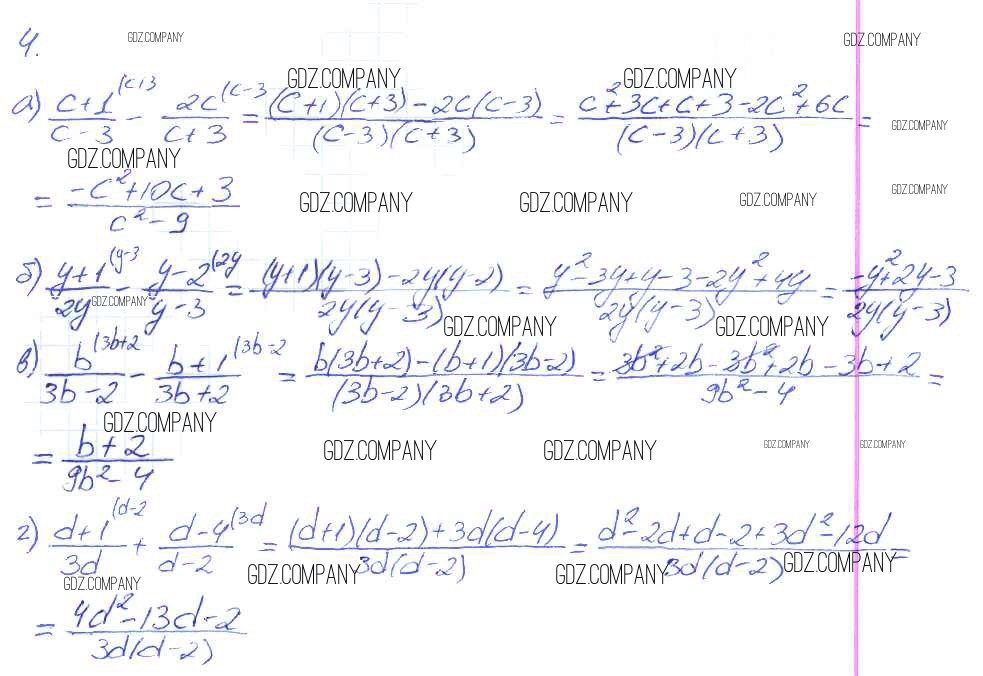 4.
GDZ.COMPANY GDZ.COMPANY
GDZ.COMPANY GDZ.COMPANY
а) (c+1)/(c-3) (c+3 - 2c/(c+3) (c-3 = ((c+1)(c+3)-2c(c-3))/((c-3)(c+3)) = (c²+3c+c+3-2c²+6c)/((c-3)(c+3)) =
GDZ.COMPANY GDZ.COMPANY
= (-c²+10c+3)/(c²-9)
GDZ.COMPANY GDZ.COMPANY GDZ.COMPANY GDZ.COMPANY
б) (y+1)/(2y) (y-3 - (y-2)/(y-3) (2y = ((y+1)(y-3)-2y(y-2))/(2y(y-3)) = (y²-3y+y-3-2y²+4y)/(2y(y-3)) = (-y²+2y-3)/(2y(y-3))
GDZ.COMPANY GDZ.COMPANY GDZ.COMPANY
в) b/(3b-2) (3b+2 - (b+1)/(3b+2) (3b-2 = (b(3b+2)-(b+1)(3b-2))/((3b-2)(3b+2)) = (3b²+2b-3b²+2b-3b+2)/(9b²-4) =
GDZ.COMPANY
= (b+2)/(9b²-4)
GDZ.COMPANY GDZ.COMPANY GDZ.COMPANY GDZ.COMPANY
г) (d+1)/(3d) (d-2 + (d-4)/(d-2) (3d = ((d+1)(d-2)+3d(d-4))/(3d(d-2)) = (d²-2d+d-2+3d²-12d)/(3d(d-2)) =
GDZ.COMPANY GDZ.COMPANY GDZ.COMPANY GDZ.COMPANY
= (4d²-13d-2)/(3d(d-2))